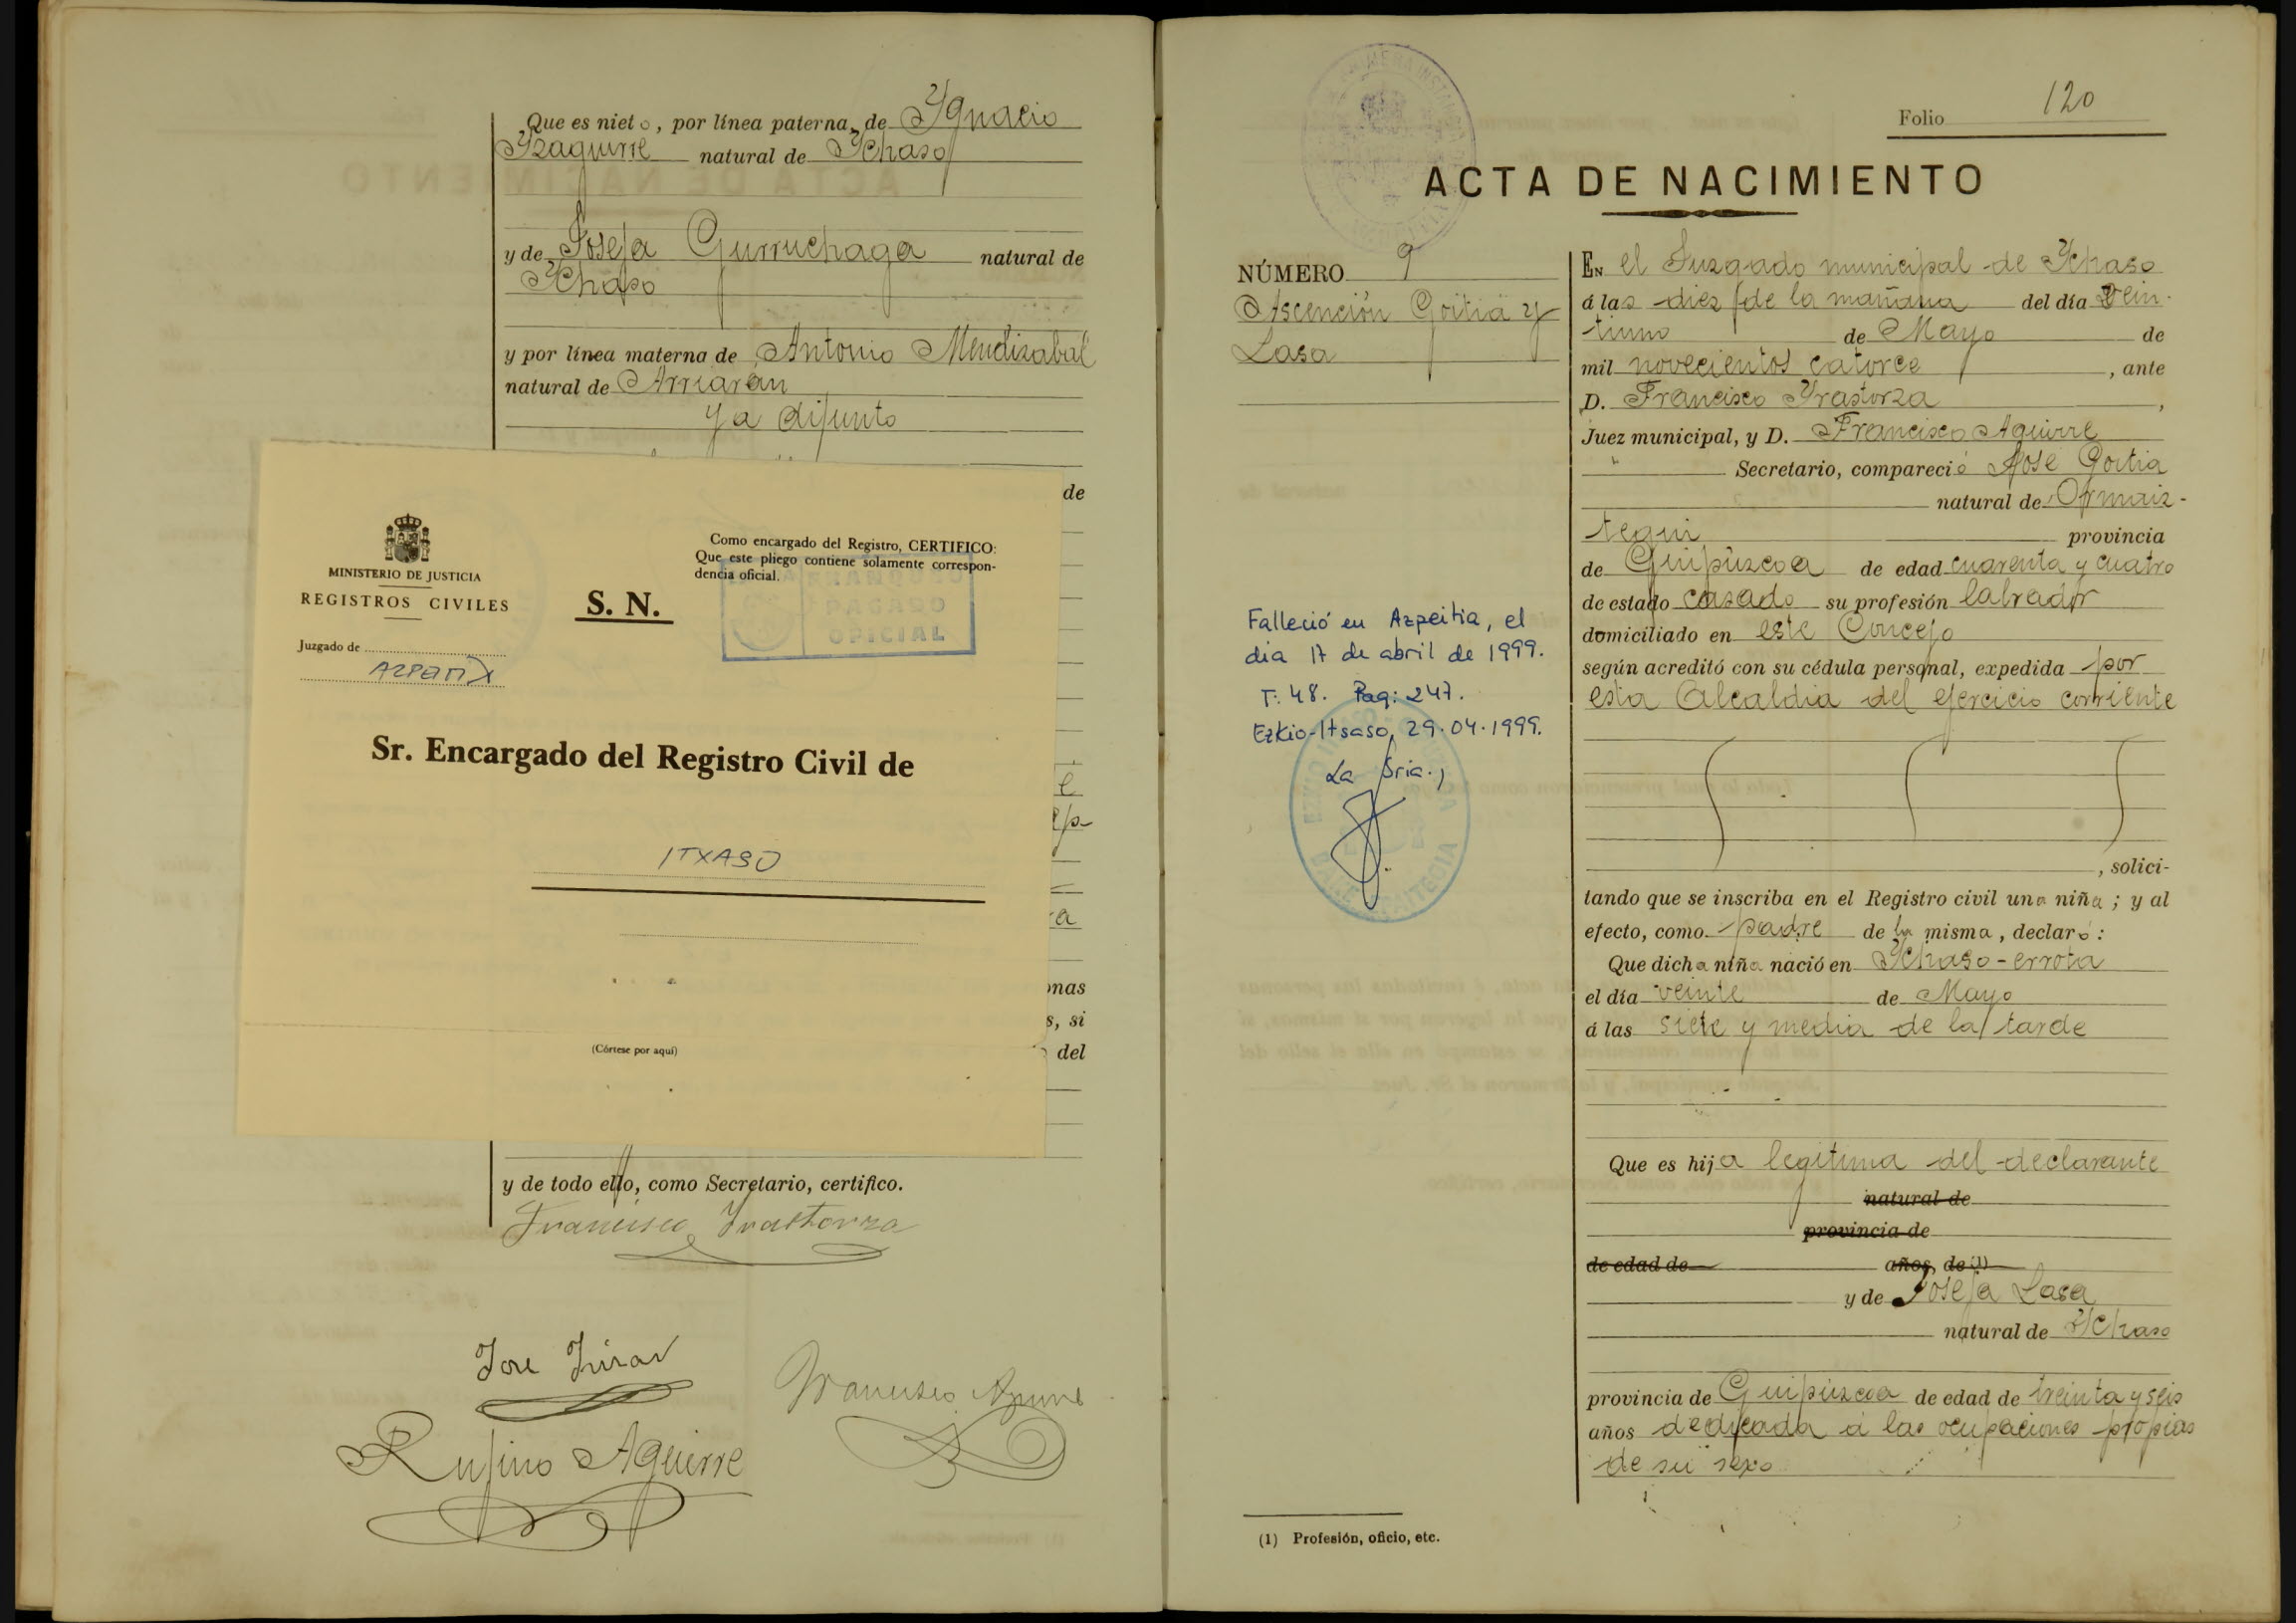 Que es nieto, por línea paterna, de Ygnacio
Yzaguirre natural de Ychaso
y de Josefa Gurruchaga natural de
Ychaso
y por línea materna de Antonio Mendizabal
natural de Arriarán
ya difunto
de
MINISTERIO DE JUSTICIA
REGISTROS CIVILES
Juzgado de
AZPEITIA
S. N.
Como encargado del Registro, CERTIFICO:
Que este pliego contiene solamente correspon-
dencia oficial.
FRANQUEO
PAGADO
OFICIAL
Sr. Encargado del Registro Civil de
ITXASO
(Córtese por aquí)
onas
s, si
del
y de todo ello, como Secretario, certifico.
Francisco Yrastorza
Jose
Francisco Aguirre
Rufino Aguirre
Folio 120
ACTA DE NACIMIENTO
NÚMERO 9
Ascención Goitia y
Lasa
Falleció en Azpeitia, el
dia 17 de abril de 1999.
T: 48. Pag: 247.
Ezkio-Itsaso, 29.04.1999.
La Sria.,
EN el Juzgado municipal de Ychaso
á las diez de la mañana del día vein-
tiuno de Mayo de
mil novecientos catorce, ante
D. Francisco Yrastorza,
Juez municipal, y D. Francisco Aguirre
Secretario, compareció José Goitia
natural de Ormaiz-
tegui provincia
de Guipúzcoa de edad cuarenta y cuatro
de estado casado su profesión labrador
domiciliado en este Concejo
según acreditó con su cédula personal, expedida por
esta Alcaldia del ejercicio corriente
, solici-
tando que se inscriba en el Registro civil una niña; y al
efecto, como padre de la misma, declaró:
Que dicha niña nació en Ychaso-errota
el día veinte de Mayo
á las siete y media de la tarde
Que es hija legitima del declarante
natural de
provincia de
de edad de años, de (1)
y de Josefa Lasa
natural de Ychaso
provincia de Guipúzcoa de edad de treinta y seis
años dedicada á las ocupaciones propias
de su sexo
(1) Profesión, oficio, etc.